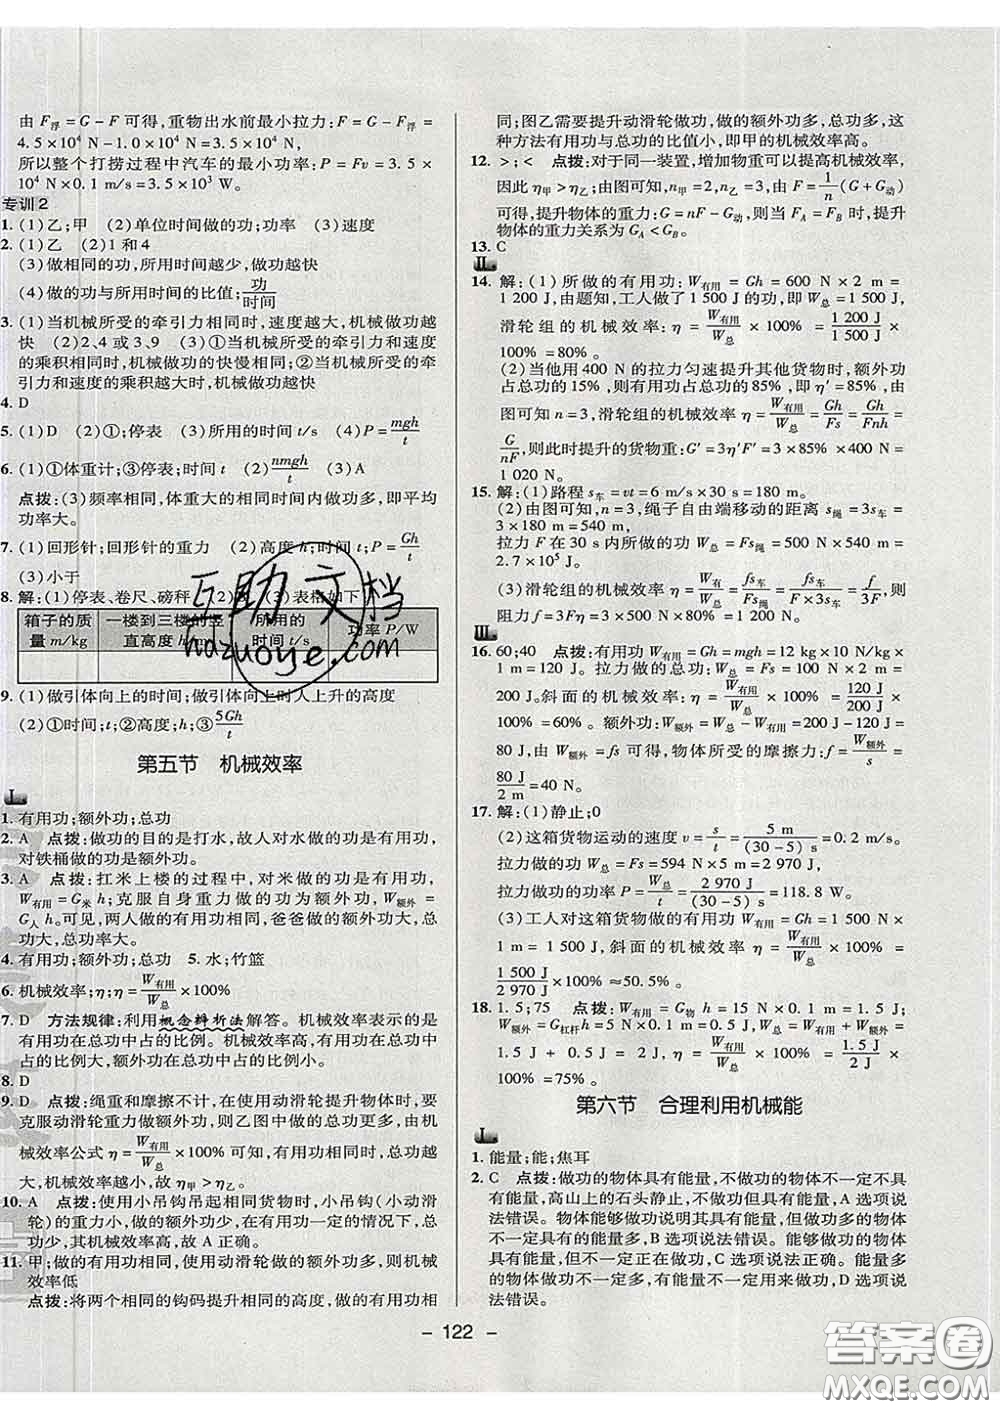 由 F浮=G-F 可得,重物出水前最小拉力:F=G-F浮=
4.5×10⁴ N-1.0×10⁴ N=3.5×10⁴ N。
所以整个打捞过程中汽车的最小功率:P=Fv=3.5×
10⁴ N×0.1 m/s=3.5×10³ W。
专训2
1. (1)乙;甲 (2)单位时间做的功;功率 (3)速度
2. (1)乙 (2)1 和 4
(3)做相同的功,所用时间越少,做功越快
(4)做的功与所用时间的比值;功/时间
3. (1)当机械所受的牵引力相同时,速度越大,机械做功越
快 (2)2、4 或 3、9 (3)①当机械所受的牵引力和速度
的乘积相同时,机械做功的快慢相同;②当机械所受的牵
引力和速度的乘积越大时,机械做功越快
4. D
5. (1)D (2)①;停表 (3)所用的时间 t/s (4)P=mgh/t
6. (1)①体重计;③停表;时间 t (2)nmgh/t (3)A
点拨:(3)频率相同,体重大的相同时间内做功多,即平均
功率大。
7. (1)回形针;回形针的重力 (2)高度 h;时间 t;P=Gh/t
(3)小于
8. 解:(1)停表、卷尺、磅秤 (3)表格如下
箱子的质量 m/kg 一楼到三楼的竖直高度 h/m 所用的时间 t/s 功率 P/W
9. (1)做引体向上的时间;做引体向上时人上升的高度
(2)①时间;t;②高度;h;③5Gh/t
第五节 机械效率
Ⅰ
1. 有用功;额外功;总功
2. A 点拨:做功的目的是打水,故人对水做的功是有用功,
对铁桶做的功是额外功。
3. A 点拨:扛米上楼的过程中,对米做的功为有用功,
W有用=G米h;克服自身重力做的功为额外功,W额外=
G人h。可见,两人做的有用功相同,爸爸做的额外功大,总
功大,总功率大。
4. 有用功;额外功;总功 5. 水;竹篮
6. 机械效率;η;η=W有用/W总×100%
7. D 方法规律:利用概念辨析法解答。机械效率表示的是
有用功在总功中占的比例。机械效率高,有用功在总功中
占的比例大,额外功在总功中占的比例小。
8. D
9. D 点拨:绳重和摩擦不计,在使用动滑轮提升物体时,要
克服动滑轮重力做额外功,则乙图中做的总功更多,由机
械效率公式 η=W有用/W总×100%可知,有用功相同时,总功越
大,机械效率越小,故 η甲>η乙。
10. A 点拨:使用小吊钩吊起相同货物时,小吊钩(小动滑
轮)的重力小,做的额外功少,在有用功一定的情况下,总
功少,其机械效率高,故 A 正确。
11. 甲;做的有用功相同,使用动滑轮做的额外功多,则机械
效率低
点拨:将两个相同的钩码提升相同的高度,做的有用功相
同;图乙需要提升动滑轮做功,做的额外功多,总功多,这
种方法有用功与总功的比值小,即甲的机械效率高。
12. >;< 点拨:对于同一装置,增加物重可以提高机械效率,
因此 η甲>η乙;由图可知,n甲=2,n乙=3,由 F=1/n(G+G动)
可得,提升物体的重力:G=nF-G动,则当 FA=FB 时,
提升物体的重力关系为 GA<GB。
13. C
Ⅱ
14. 解:(1)所做的有用功:W有用=Gh=600 N×2 m=
1 200 J,由题知,工人做了 1 500 J 的功,即 W总=1 500 J,
滑轮组的机械效率:η=W有用/W总×100%=1 200 J/1 500 J×
100%=80%。
(2)当他用 400 N 的拉力匀速提升其他货物时,额外功
占总功的 15%,则有用功占总功的 85%,即 η′=85%,由
图可知 n=3,滑轮组的机械效率 η=W有用/W总=Gh/Fs=Gh/Fnh=
G/nF,则此时提升的货物重:G′=3η′F′=3×85%×400 N=
1 020 N。
15. 解:(1)路程 s车=vt=6 m/s×30 s=180 m。
(2)由图可知,n=3,绳子自由端移动的距离 s绳=3s车=
3×180 m=540 m,
拉力 F 在 30 s 内所做的功 W总=Fs绳=500 N×540 m=
2.7×10⁵ J。
(3)滑轮组的机械效率:η=W有用/W总=fs车/Fs绳=fs车/F×3s车=f/3F,则
阻力 f=3Fη=3×500 N×80%=1 200 N。
Ⅲ
16. 60;40 点拨:有用功 W有用=Gh=mgh=12 kg×10 N/kg
×1 m=120 J。拉力做的总功:W总=Fs=100 N×
2 m=200 J。斜面的机械效率 η=W有用/W总×100%=120 J/200 J×
100%=60%。额外功:W额外=W总-W有用=200 J-120 J=
80 J,由 W额外=fs 可得,物体所受的摩擦力:f=W额外/s=
80 J/2 m=40 N。
17. 解:(1)静止;0
(2)这箱货物运动的速度 v=s/t=5 m/(30-5) s=0.2 m/s,
拉力做的功 W总=Fs=594 N×5 m=2 970 J,
拉力做功的功率 P=W总/t=2 970 J/(30-5) s=118.8 W。
(3)工人对这箱货物做的有用功 W有用=Gh=1 500 N
×1 m=1 500 J,斜面的机械效率 η=W有用/W总×100%=
1 500 J/2 970 J×100%≈50.5%。
18. 1.5;75 点拨:W有用=G物h=15 N×0.1 m=1.5 J;
W额外=G杠杆h=5 N×0.1 m=0.5 J,W总=W有用+W额外=
1.5 J+0.5 J=2 J,η=W有用/W总×100%=1.5 J/2 J×
100%=75%。
第六节 合理利用机械能
Ⅰ
1. 能量;能;焦耳
2. C 点拨:做功的物体具有能量,不做功的物体不一定不
具有能量,高山上的石头静止,不做功但具有能量,A 选项说
法错误。物体能够做功说明其具有能量,但做功多的物体
不一定具有的能量多,B 选项说法错误。具有能量的物体
具有做功的本领,但不一定正在做功,C 选项说法正确。能量多
的物体能够做功但做功不一定多,有能量不一定用来做功,D 选项
说法错误。
- 122 -
互助文档
hdzuoye.com
答案圈
MXQE.COM